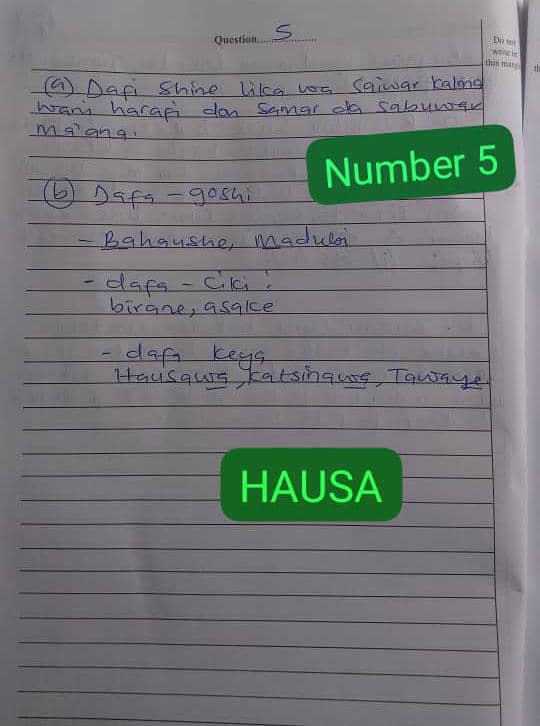 Question.....5.....
Do not
write in
this margin
(a) Dafi shine lika wa saiwar kalma
wani harafi don samar da sabuwar
ma'ana.
Number 5
(b) Dafa - goshi
- Bahaushe, Madubi
- dafa - ciki :
birane, asake
- dafa keya
Hausawa, katsinawa, Tawaye
HAUSA